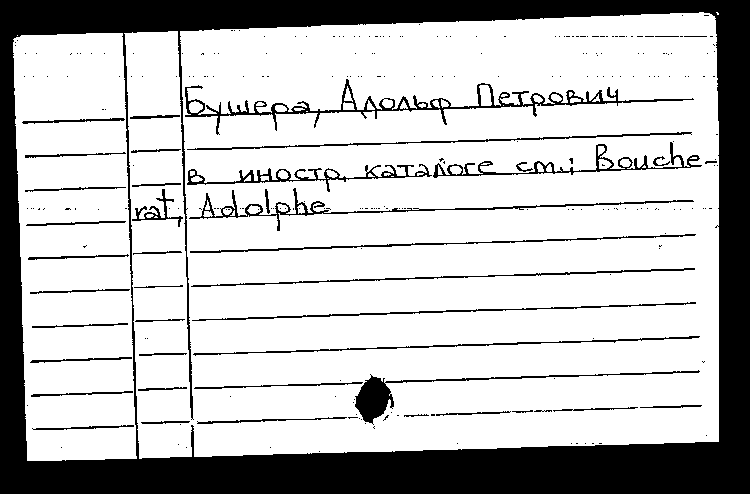 Бушера, Адольф Петрович
в иностр. каталоге см.: Bouche-
rat, Adolphe